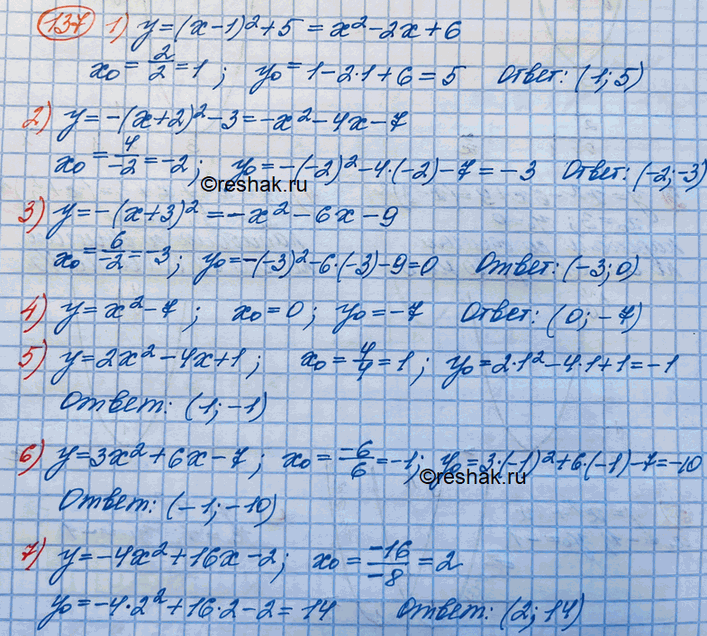 137 1) y=(x-1)²+5=x²-2x+6
x₀=2/2=1; y₀=1-2·1+6=5 Ответ: (1;5)
2) y=-(x+2)²-3=-x²-4x-7
x₀=4/-2=-2; y₀=-(-2)²-4·(-2)-7=-3 Ответ: (-2;-3)
©reshak.ru
3) y=-(x+3)²=-x²-6x-9
x₀=6/-2=-3; y₀=-(-3)²-6·(-3)-9=0 Ответ: (-3;0)
4) y=x²-7; x₀=0; y₀=-7 Ответ: (0;-7)
5) y=2x²-4x+1; x₀=4/4=1; y₀=2·1²-4·1+1=-1
Ответ: (1;-1)
6) y=3x²+6x-7; x₀=-6/6=-1; y₀=3·(-1)²+6·(-1)-7=-10
©reshak.ru
Ответ: (-1;-10)
7) y=-4x²+16x-2; x₀=-16/-8=2
y₀=-4·2²+16·2-2=14 Ответ: (2;14)